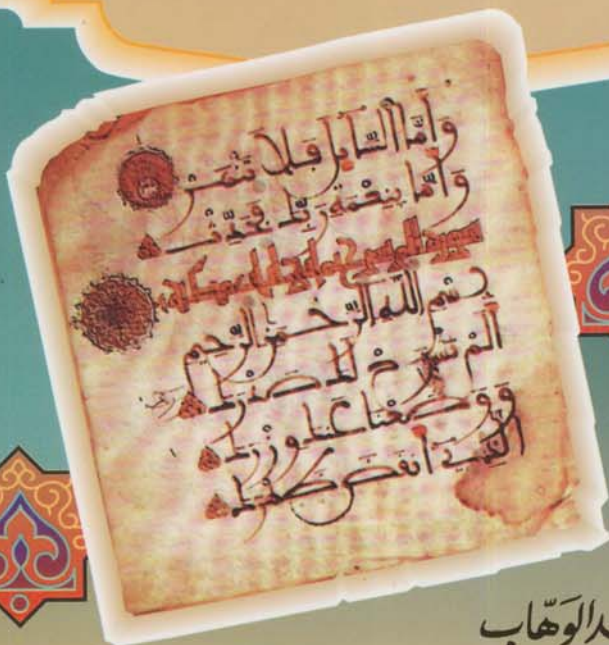 وَأَمَّا السَّايِلَ فَلَا تَنْهَرْ
وَأَمَّا بِنِعْمَةِ رَبِّكَ فَحَدِّثْ
سورة الم نشرح
بِسْمِ اللَّهِ الرَّحْمَنِ الرَّحِيمِ
أَلَمْ نَشْرَحْ لَكَ صَدْرَكَ
وَوَضَعْنَا عَنكَ وِزْرَكَ
الَّذِي أَنقَضَ ظَهْرَكَ
ـدالوَهّاب